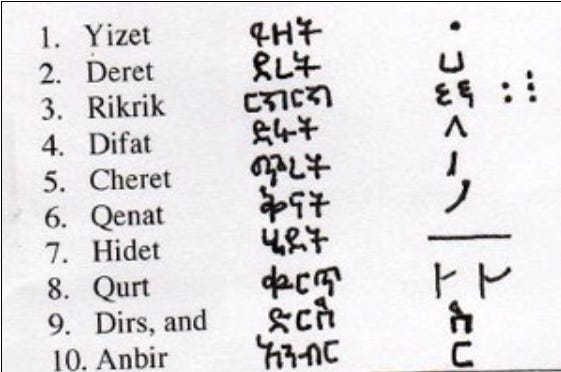 1. Yizet ይዘት •
2. Deret ደረት ⊔
3. Rikrik ርክርክ : ⋮
4. Difat ድፋት ^
5. Cheret ጭረት
6. Qenat ቅናት
7. Hidet ሂደት —
8. Qurt ቁርጥ ⊦ ⊦
9. Dirs, and ድርስ ስ
10. Anbir አንብር ር